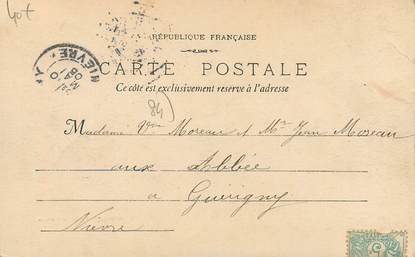 40+
RÉPUBLIQUE FRANÇAISE
CARTE POSTALE
Ce côté est exclusivement réservé à l'adresse
NIÈVRE
84
Madame Vve Moreau et Mr Jean Moreau
aux Abbée
a Guérigny
Nièvre
5